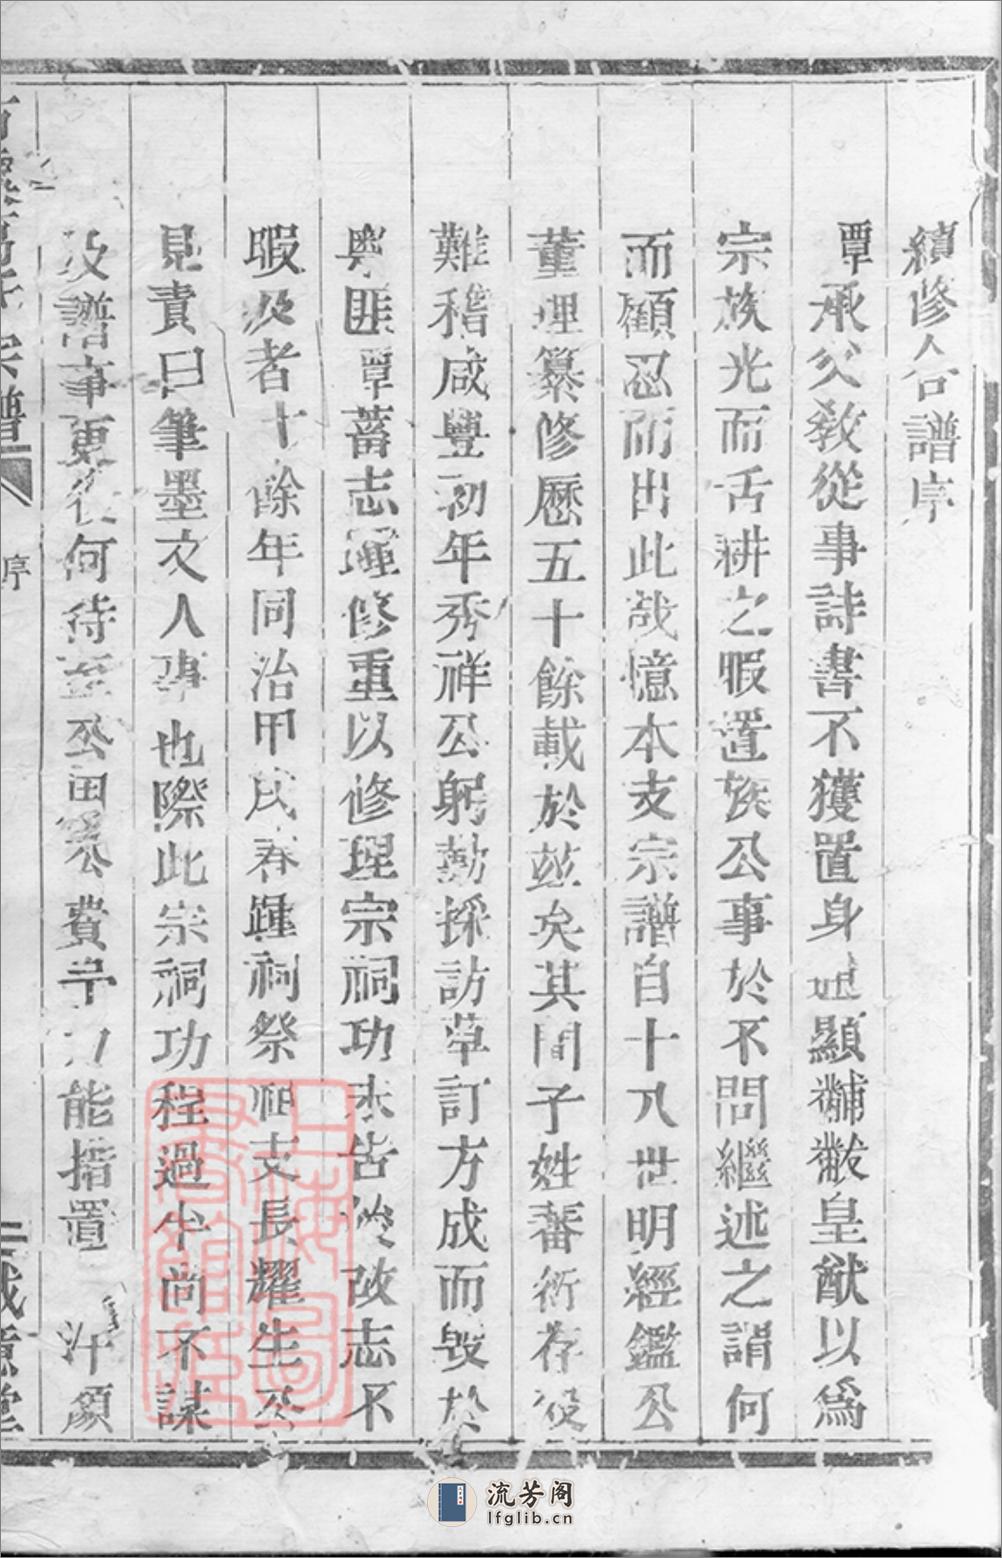 續修合譜序
覃承父敎從事詩書不獲置身通顯黼黻皇猷以爲
宗族光而舌耕之暇置族公事於不問繼述之謂何
而顧忍而出此哉憶本支宗譜自十八世明經鑑公
董理纂修歷五十餘載於茲矣其間子姓蕃衍存歿
難稽咸豐初年秀祥公躬勤採訪草訂方成而毁於
粵匪覃蓄志踵修重以修理宗祠功未告竣改志不
暇及者十餘年同治甲戌春踵祠祭祖支長耀生公
見責曰筆墨文人事也際此宗祠功程過半尚不謀
及譜事更復何待至公田爲公費予力能措置 汗顏
氏宗譜
序
二
上海圖書館藏
流芳阁
lfglib.cn